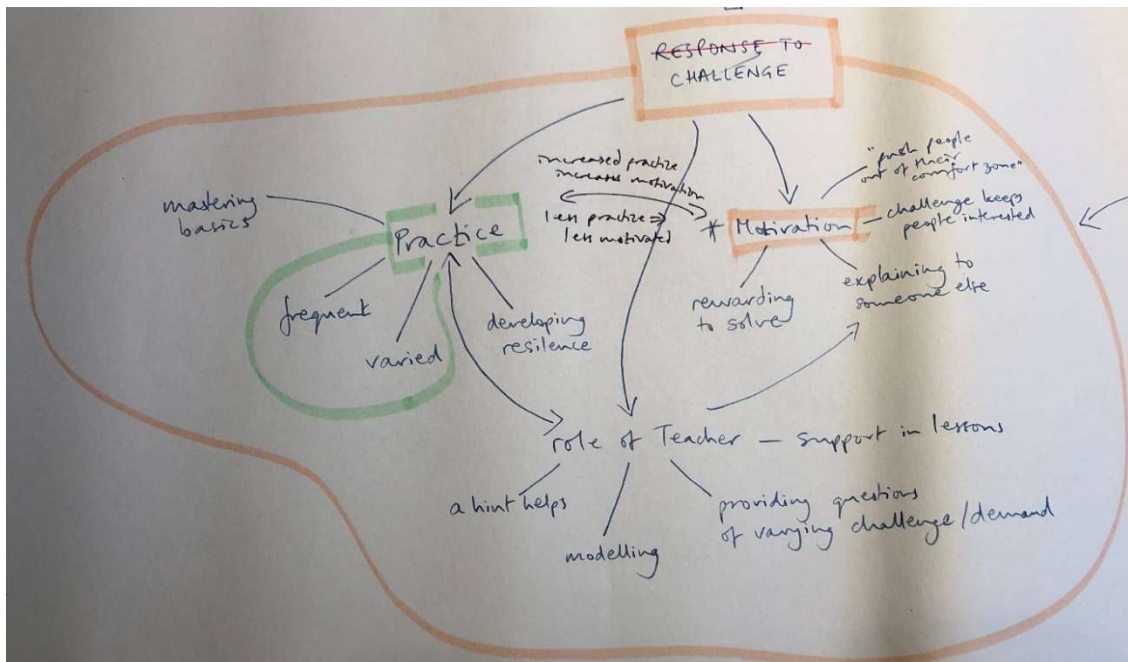 RESPONSE TO
CHALLENGE
"push people
out of their
comfort zone"
increased practize
increases motivation
less practize ⇒
less motivated
mastering
basics
Practice
* Motivation
challenge keeps
people interested
frequent
varied
developing
resilence
rewarding
to solve
explaining to
someone else
role of Teacher — support in lessons
a hint helps
modelling
providing questions
of varying challenge/demand